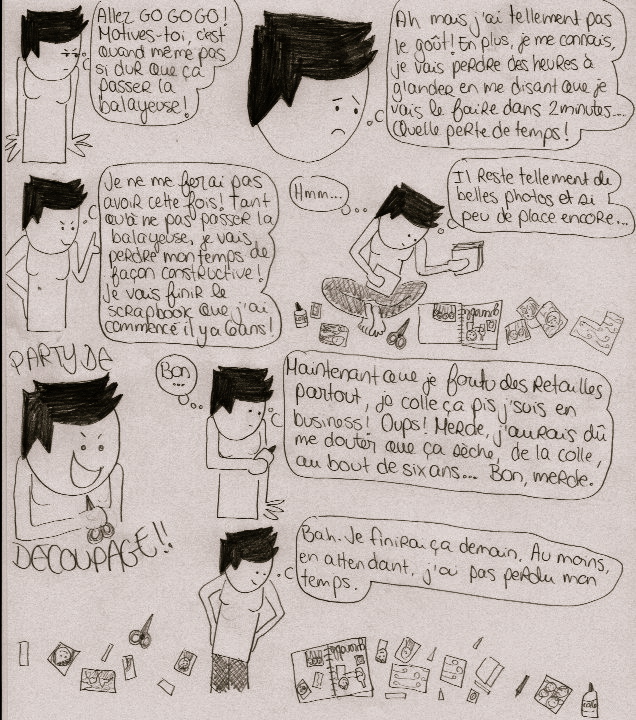 Allez GO GO GO!
Motives-toi, c'est
quand même pas
si dur que ça
passer la
balayeuse!
Ah mais j'ai tellement pas
le goût! En plus, je me connais,
je vais perdre des heures à
glander en me disant que je
vais le faire dans 2 minutes...
Quelle perte de temps!
Je ne me ferai pas
avoir cette fois! Tant
qu'à ne pas passer la
balayeuse, je vais
perdre mon temps de
façon constructive!
Je vais finir le
scrapbook que j'ai
commencé il y a 6 ans!
Hmm...
Il reste tellement de
belles photos et si
peu de place encore...
PARTY DE
DÉCOUPAGE!!
Bon
...
Maintenant que je foutu des retailles
partout, je colle ça pis j'suis en
business! Oups! Merde, j'aurais dû
me douter que ça sèche, de la colle,
au bout de six ans... Bon, merde.
Bah. Je finirai ça demain. Au moins,
en attendant, j'ai pas perdu mon
temps.